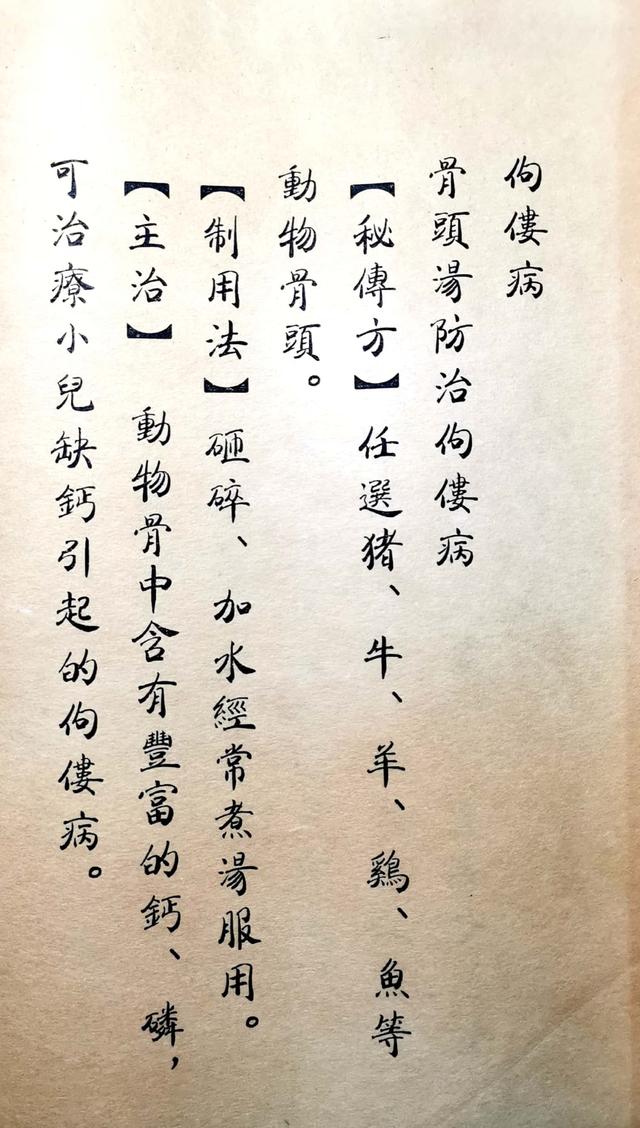 佝僂病
骨頭湯防治佝僂病
【秘傳方】任選猪、牛、羊、鷄、魚等
動物骨頭。
【制用法】砸碎、加水經常煮湯服用。
【主治】動物骨中含有豐富的鈣、磷，
可治療小兒缺鈣引起的佝僂病。